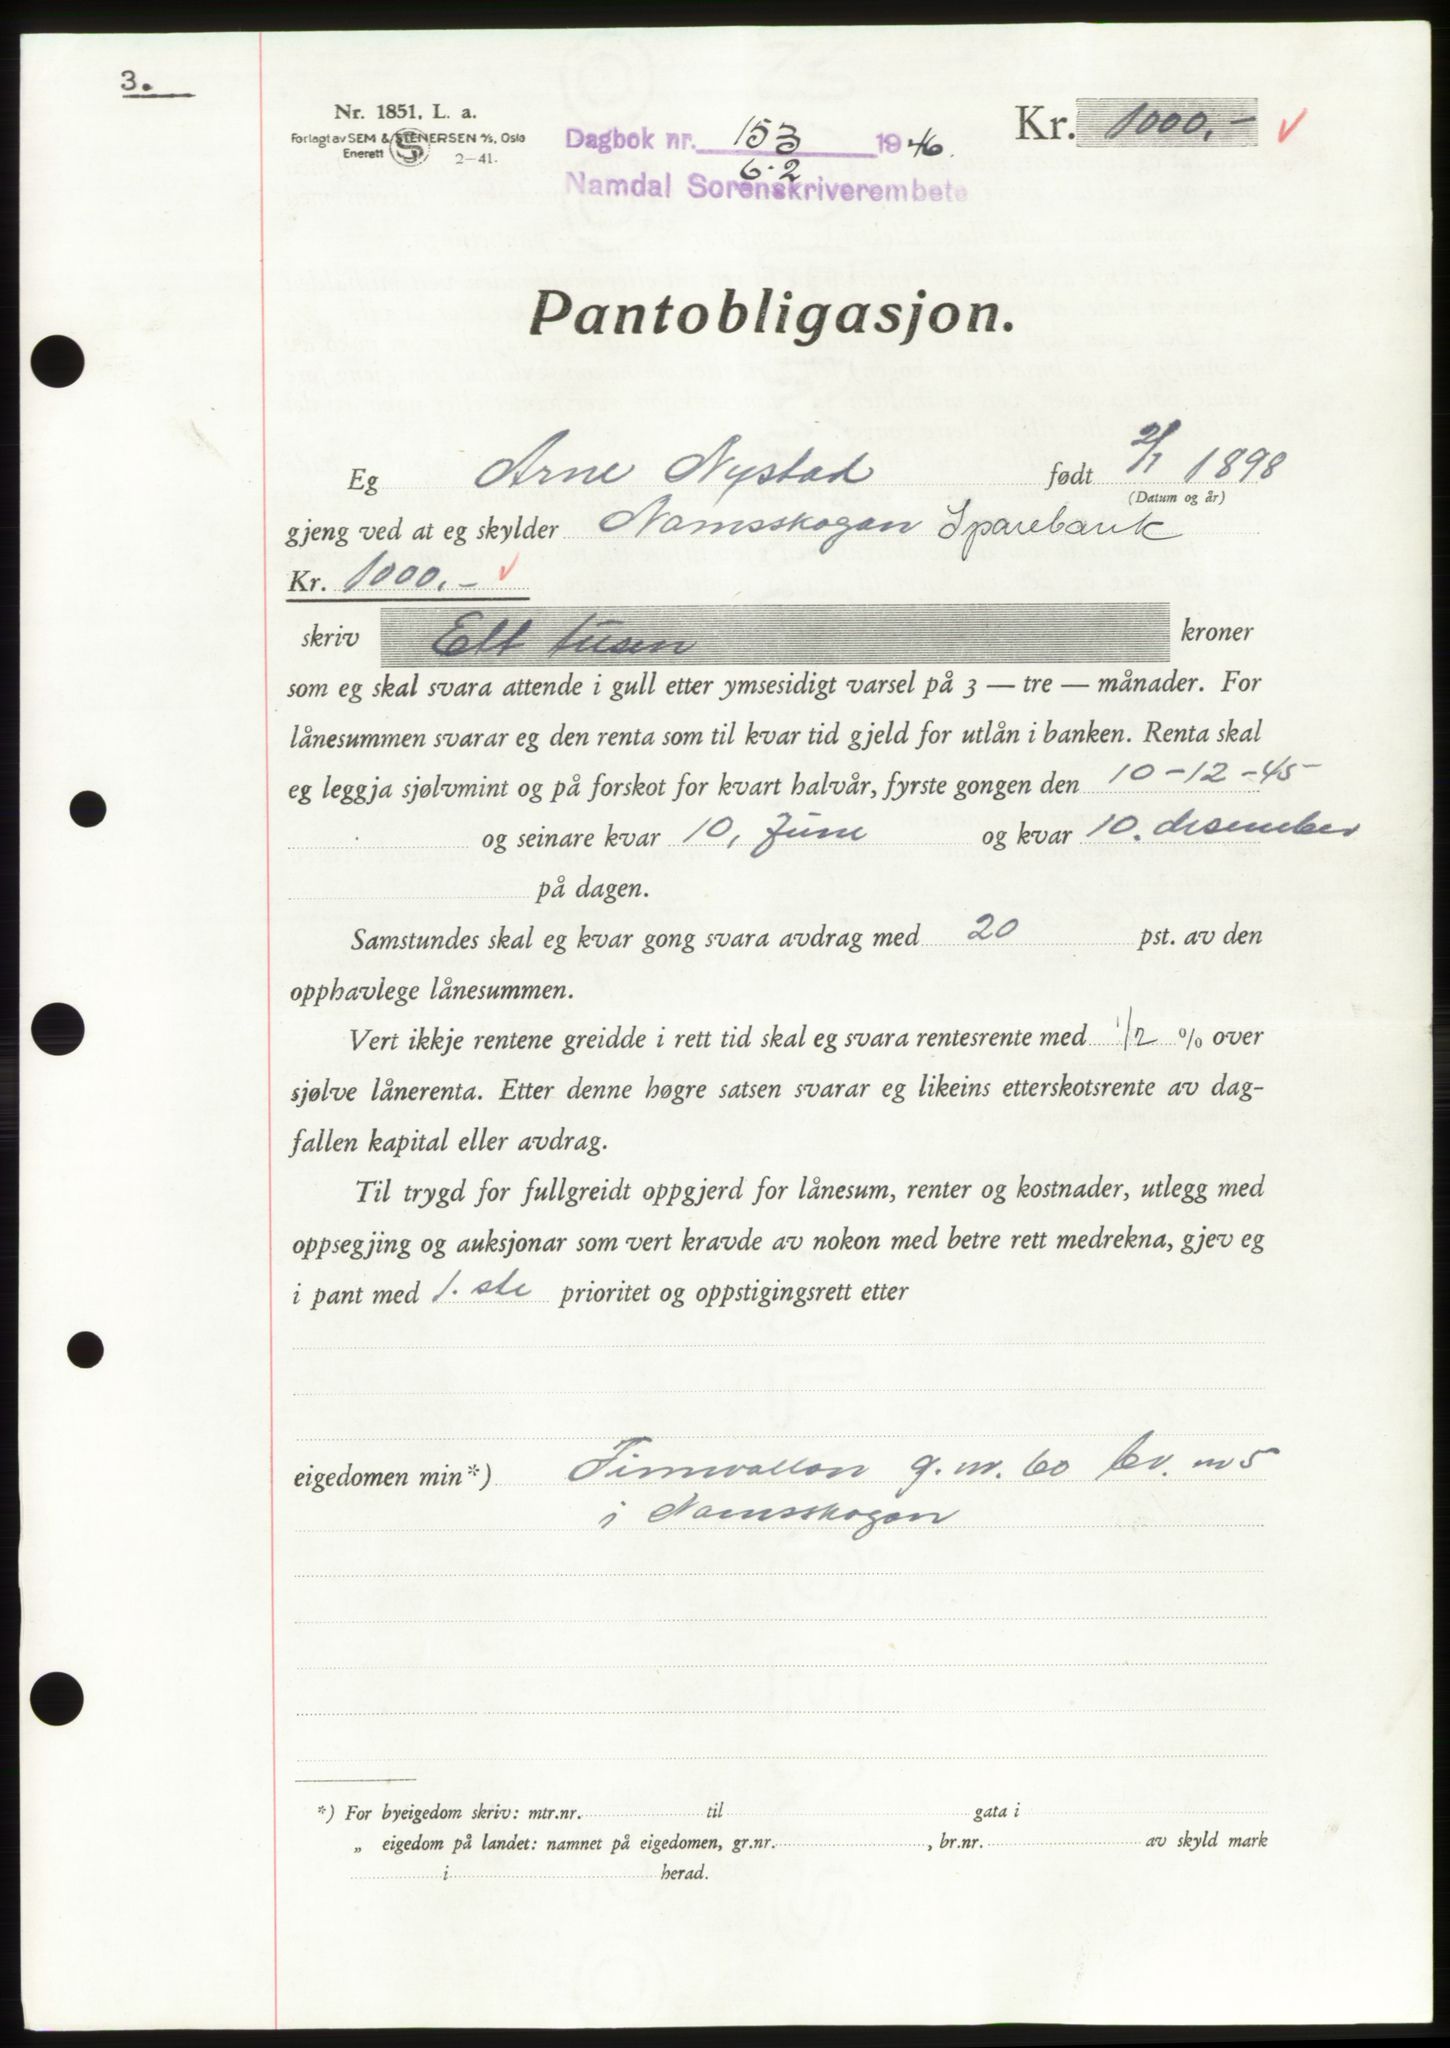 3.
Nr. 1851, L. a.
Forlagt av SEM & STENERSEN A/S, Oslo
Enerett 2—41.
Dagbok nr. 153 1946.
6.2
Namdal Sorenskriverembete
Kr. 1000,-
Pantobligasjon.
Eg Arne Nystad født 2/1 1898
(Datum og år)
gjeng ved at eg skylder Namsskogan Sparebank
Kr. 1000,-
skriv Ett tusen kroner
som eg skal svara attende i gull etter ymsesidigt varsel på 3 — tre — månader. For
lånesummen svarar eg den renta som til kvar tid gjeld for utlån i banken. Renta skal
eg leggja sjølvmint og på forskot for kvart halvår, fyrste gongen den 10-12-45
og seinare kvar 10, Juni og kvar 10. desember
på dagen.
Samstundes skal eg kvar gong svara avdrag med 20 pst. av den
opphavlege lånesummen.
Vert ikkje rentene greidde i rett tid skal eg svara rentesrente med 1/2 % over
sjølve lånerenta. Etter denne høgre satsen svarar eg likeins etterskotsrente av dag-
fallen kapital eller avdrag.
Til trygd for fullgreidt oppgjerd for lånesum, renter og kostnader, utlegg med
oppsegjing og auksjonar som vert kravde av nokon med betre rett medrekna, gjev eg
i pant med 1. ste prioritet og oppstigingsrett etter
eigedomen min*) Finnvollan g. nr. 60 br. nr 5
i Namsskogan
*) For byeigedom skriv: mtr.nr. til gata i
„ eigedom på landet: namnet på eigedomen, gr.nr. , br.nr. av skyld mark
i herad.